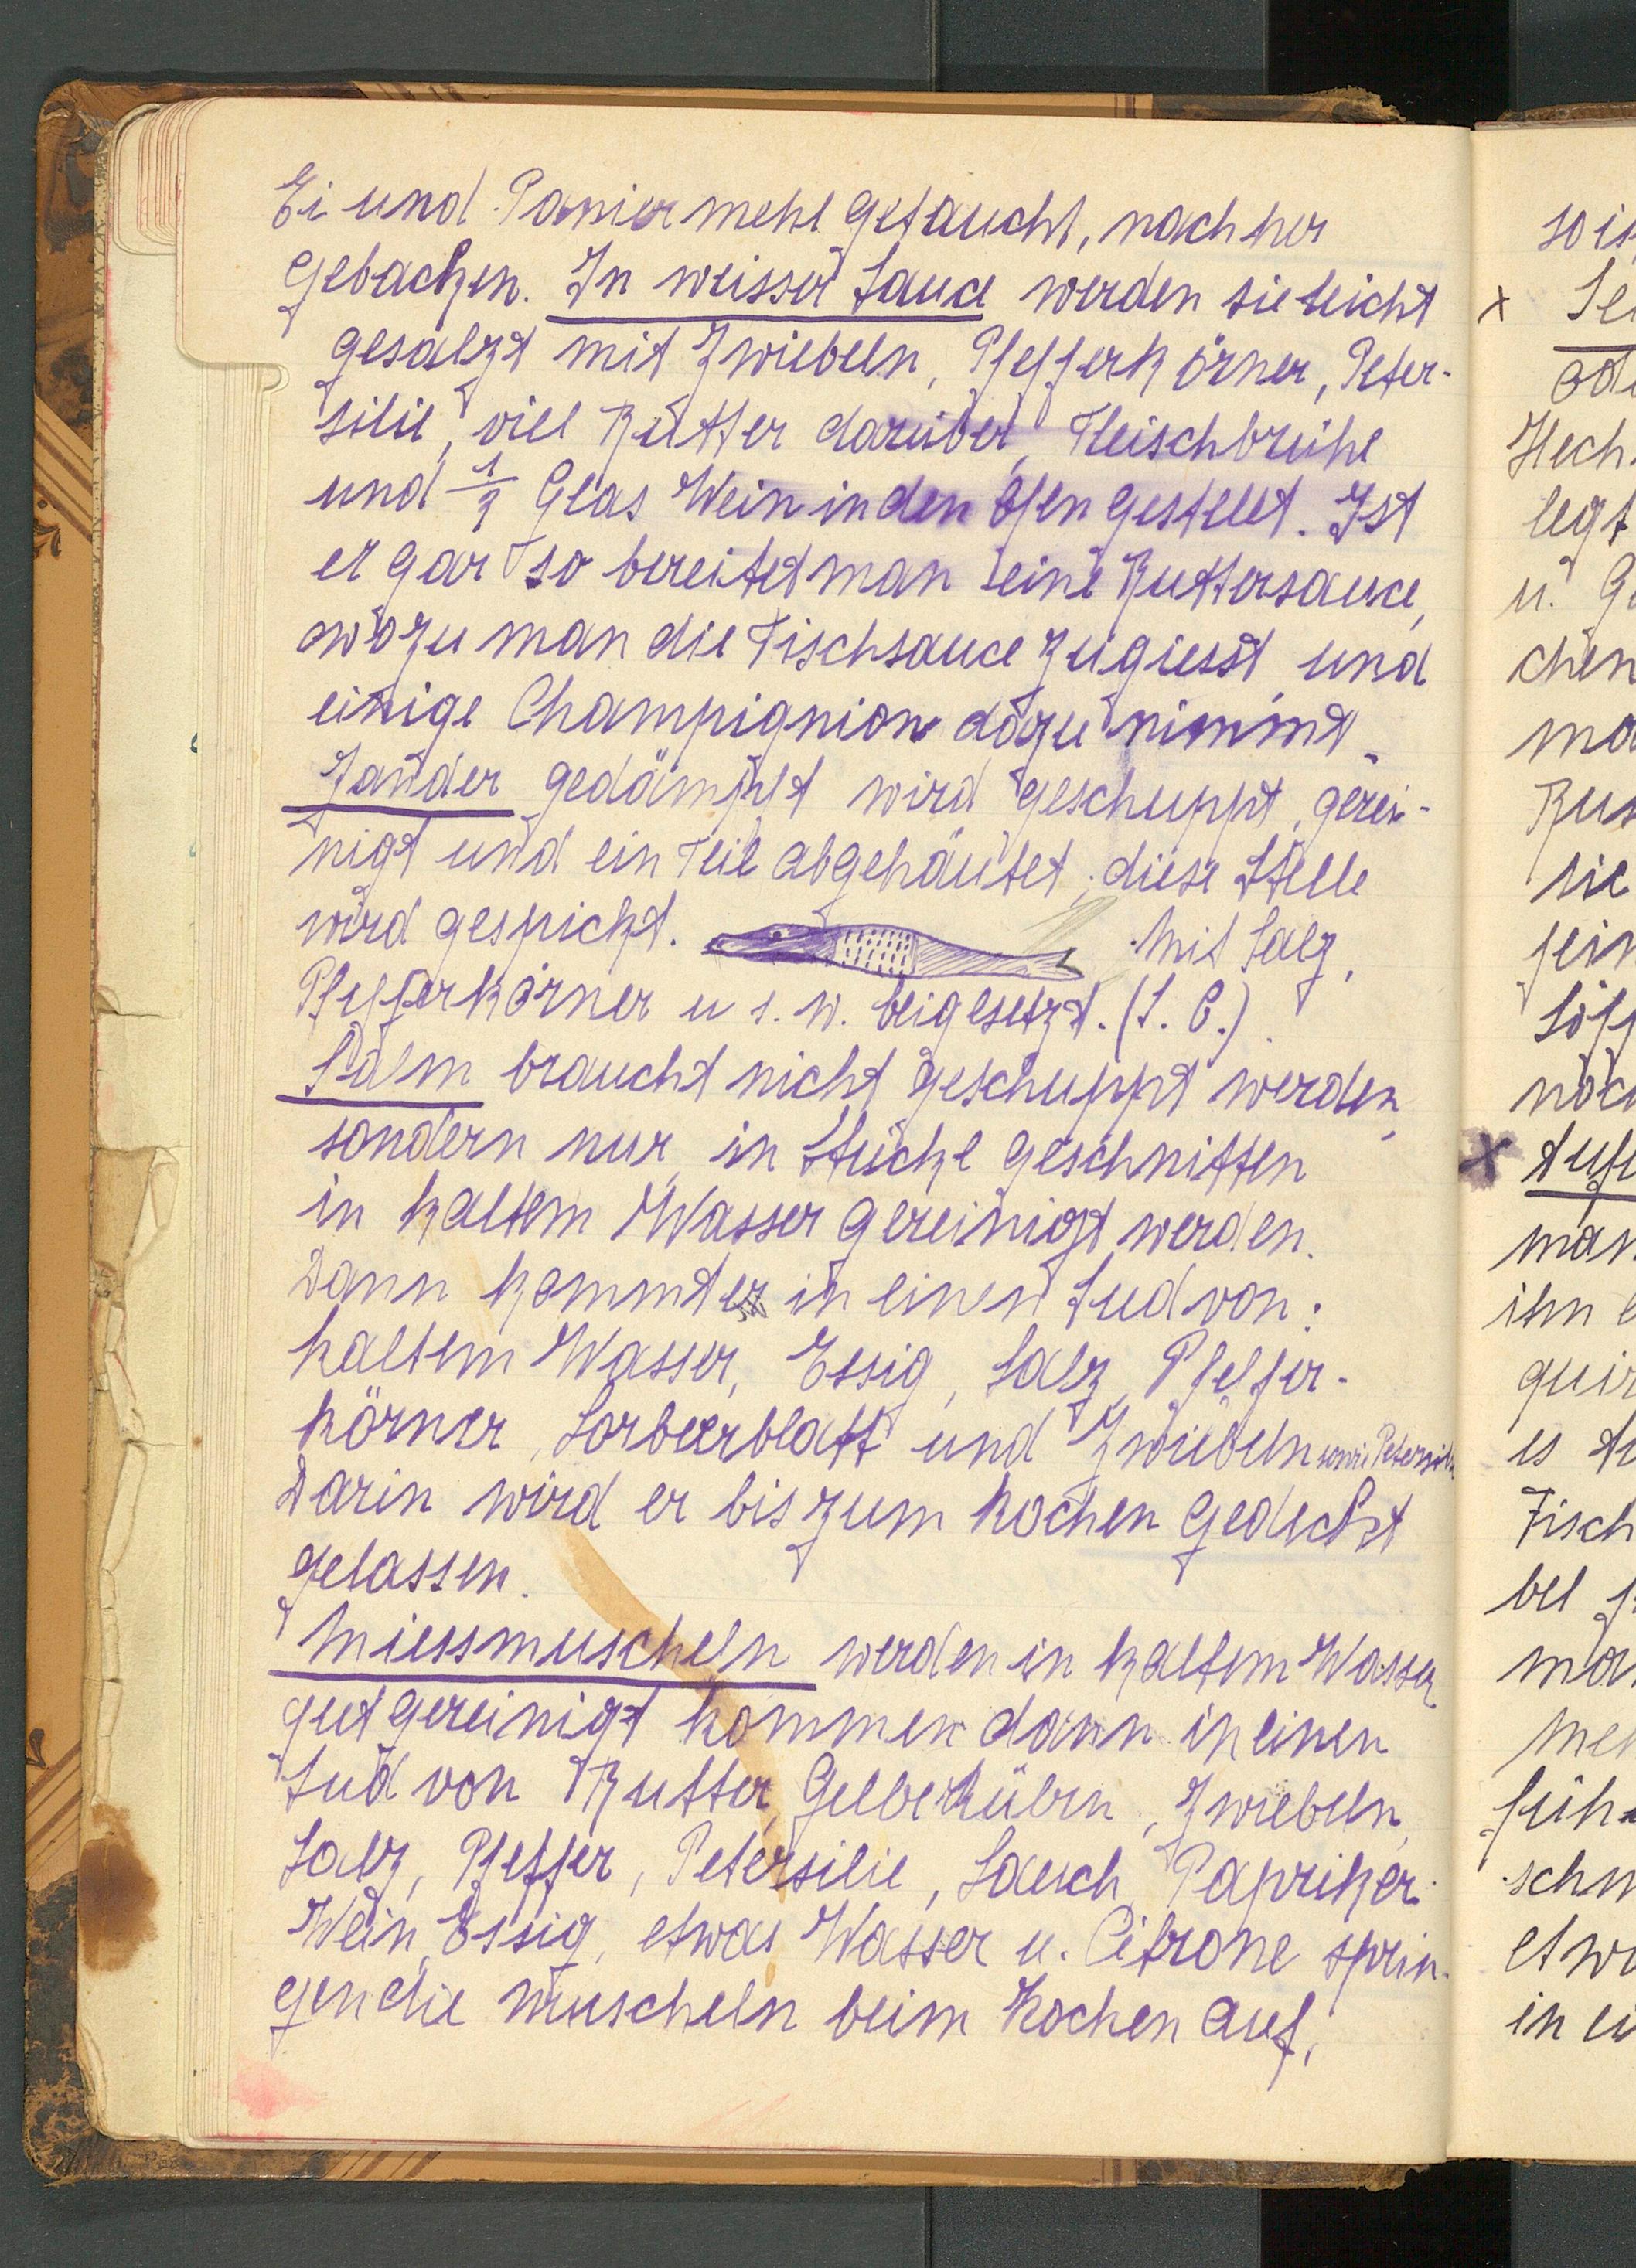 Ei und Paniermehl getaucht, nachher
gebacken. In weisser Sauce werden sie leicht
gesalzt mit Zwiebeln, Pfefferkörner, Peter-
silie, viel Butter darüber, Fleischbrühe
und ½ Glas Wein in den Ofen gestellt. Ist
er gar so bereitet man eine Buttersauce,
wozu man die Fischsauce zugiesst, und
einige Champignion dazu nimmt.
Zander gedämpft wird geschuppt, gerei-
nigt und ein Teil abgehäutet, diese Stelle
wird gespickt. Mit Salz,
Pfefferkörner u s. w. beigesetzt. (S. C.)
Salm braucht nicht geschuppt werden,
sondern nur in Stücke geschnitten
in kaltem Wasser gereinigt werden.
Dann kommt er in einen Sud von:
kaltem Wasser, Essig, Salz, Pfeffer-
körner, Lorbeerblatt und Zwiebeln sowie Petersilie
Darin wird er bis zum Kochen gedeckt
gelassen.
Miessmuscheln werden in kaltem Wasser
gut gereinigt kommen dann in einen
Sud von Butter, Gelberüben, Zwiebeln,
Salz, Pfeffer, Petersilie, Lauch, Papriker
Wein, Essig, etwas Wasser u. Citrone sprin-
gen die Muscheln beim Kochen auf,
so is
x
Hech
legt
u. G
chen
ma
sie
noch
x
man
ihn
es
Fisch
bel
ma
schn
etwa
in ei